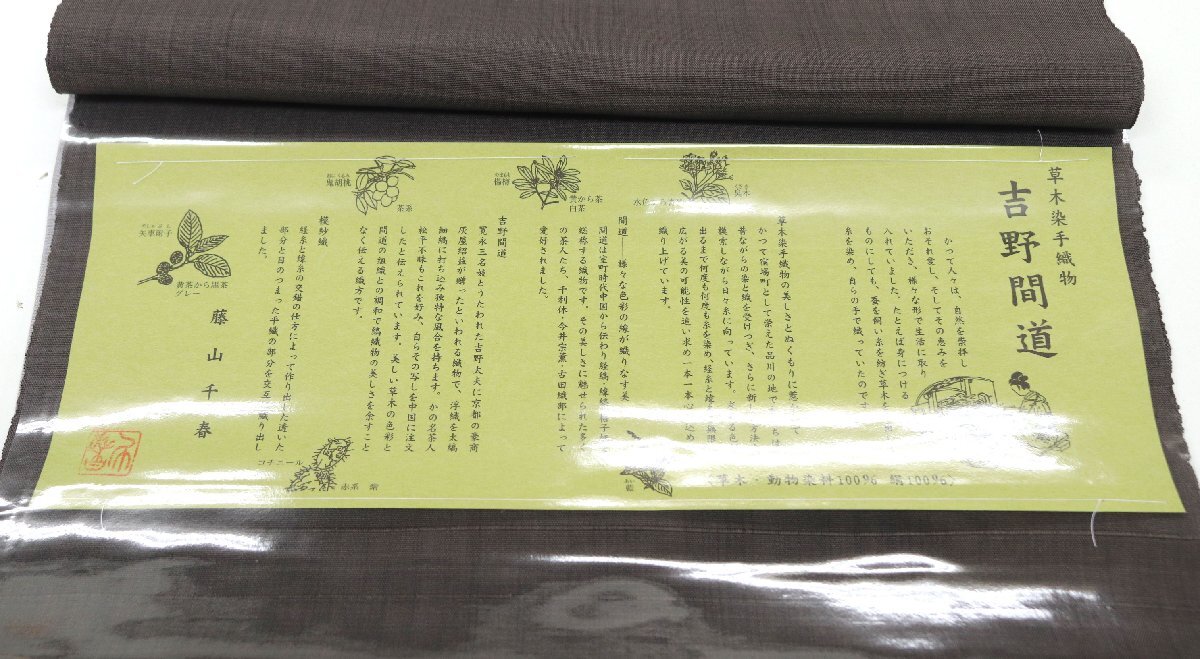 草木染手織物
吉野間道
かつて人々は、自然を崇拝し
おそれ愛し、そしてその恵みを
いただき、様々な形で生活に取り
入れていました。たとえば身につける
ものにしても、蚕を飼い糸を紡ぎ草木
糸を染め、自らの手で織っていたのです
草木染手織物の美しさとぬくもりに惹
かつて宿場町として栄えた品川の地で
昔ながらの染と織を受けつぎ、さらに新
模索しながら日々糸に向っています。
出るまで何度も何度も糸を染め、経糸と緯
広がる美の可能性を追い求め一本一本心
織り上げています。
間道――様々な色彩の線が織りなす美
間道は室町時代中国から伝わり経縞、緯縞、格子
総称する織物です。その美しさに魅せられた多
の茶人たち、千利休・今井宗薫・古田織部によって
愛好されました。
吉野間道
寛永三名妓とうたわれた吉野太夫に京都の豪商
灰屋紹益が贈ったといわれる織物で、浮織を太縞
細縞に打ち込み独特な風合を持ちます。かの名茶人
松平不昧もこれを好み、自らその写しを中国に注文
したと伝えられています。美しい草木の色彩と
間道の組織との調和で縞織物の美しさを余すこと
なく伝える織方です。
模紗織
経糸と緯糸の交錯の仕方によって作り出した透いた
部分と目のつまった平織の部分を交互に織り出し
ました。
藤山千春
鬼胡桃
茶系
楊梅
黄から茶
白茶
矢車附子
黄茶から黒茶
グレー
コチニール
赤系 紫
藍
(草木・動物染料100% 絹100%)